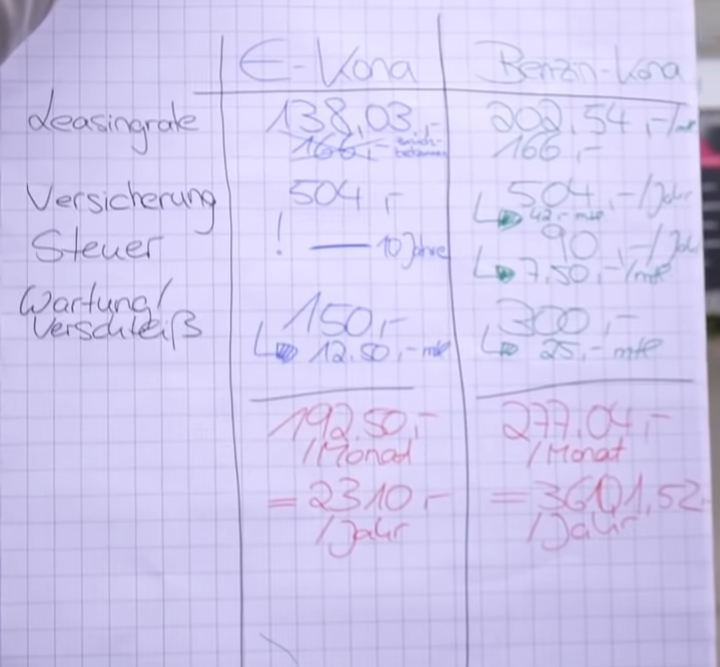 E-Kona Benzin-Kona
Leasingrate 138,03,- 202,54,-/mtl
166,- 166,-
Versicherung 504,- 504,-/Jahr
42,- mtl
Steuer ! — 10 Jahre 90,-/Ja
7,50,-/mtl
Wartung/ 150,- 300,-
Verschleiß
12,50,- mtl 25,- mtl
192,50,- 277,04,-
/Monat /Monat
=2310,- =3601,52
/Jahr /Jahr